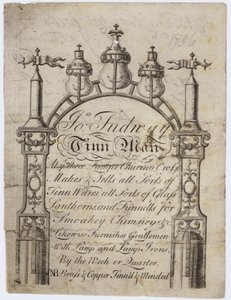 Jon. Tudway
Tinn Man
Makes & Sells all Sorts of
Tinn Ware all Sorts of Glass
Lanthorns and Funnells for
Smoakey Chimneys &
Likewise Furnishes Gentlemen
With Lamp and Lamp Irons
By the Week or Quarter
NB Brass & Copper Tinn'd & Mended